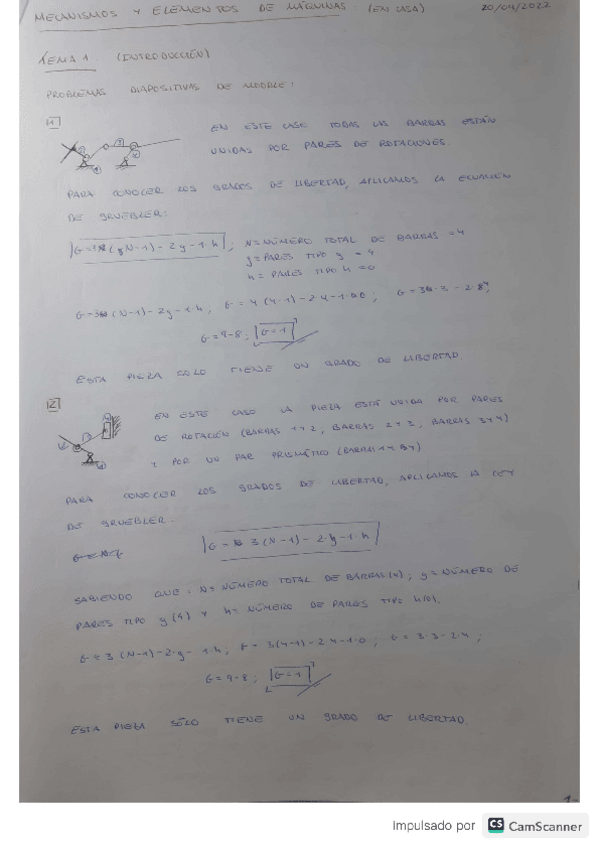 MECANISMOS Y ELEMENTOS DE MÁQUINAS (EN CASA) 20/04/2022
TEMA 1 (INTRODUCCIÓN)
PROBLEMAS DIAPOSITIVAS DE MOODLE:
1
EN ESTE CASO TODAS LAS BARRAS ESTÁN
UNIDAS POR PARES DE ROTACIONES.
PARA CONOCER LOS GRADOS DE LIBERTAD, APLICAMOS LA ECUACIÓN
DE GRUEBLER:
(N-1) - 2y - 1·h ; N = NÚMERO TOTAL DE BARRAS = 4
y = PARES TIPO y = 4
h = PARES TIPO h = 0
(N-1) - 2y - 1·h ; (4-1) - 2·4 - 1·0 ;
G = 9-8 ; G = 1
ESTA PIEZA SOLO TIENE UN GRADO DE LIBERTAD.
2
EN ESTE CASO LA PIEZA ESTÁ UNIDA POR PARES
DE ROTACIÓN (BARRAS 1 Y 2 ; BARRAS 2 Y 3 ; BARRAS 3 Y 4)
Y POR UN PAR PRISMÁTICO
PARA CONOCER LOS GRADOS DE LIBERTAD, APLICAMOS LA LEY
DE GRUEBLER:
G = 3 (N-1) - 2·y - 1·h
SABIENDO QUE: N = NÚMERO TOTAL DE BARRAS (4) ; y = NÚMERO DE
PARES TIPO y (4) Y h = NÚMERO DE PARES TIPO h (0).
G = 3 (N-1) - 2·y - 1·h ; G = 3(4-1) - 2·4 - 1·0 ; G = 3·3 - 2·4 ;
G = 9-8 ; G = 1
ESTA PIEZA SÓLO TIENE UN GRADO DE LIBERTAD.
1-
Impulsado por CS CamScanner